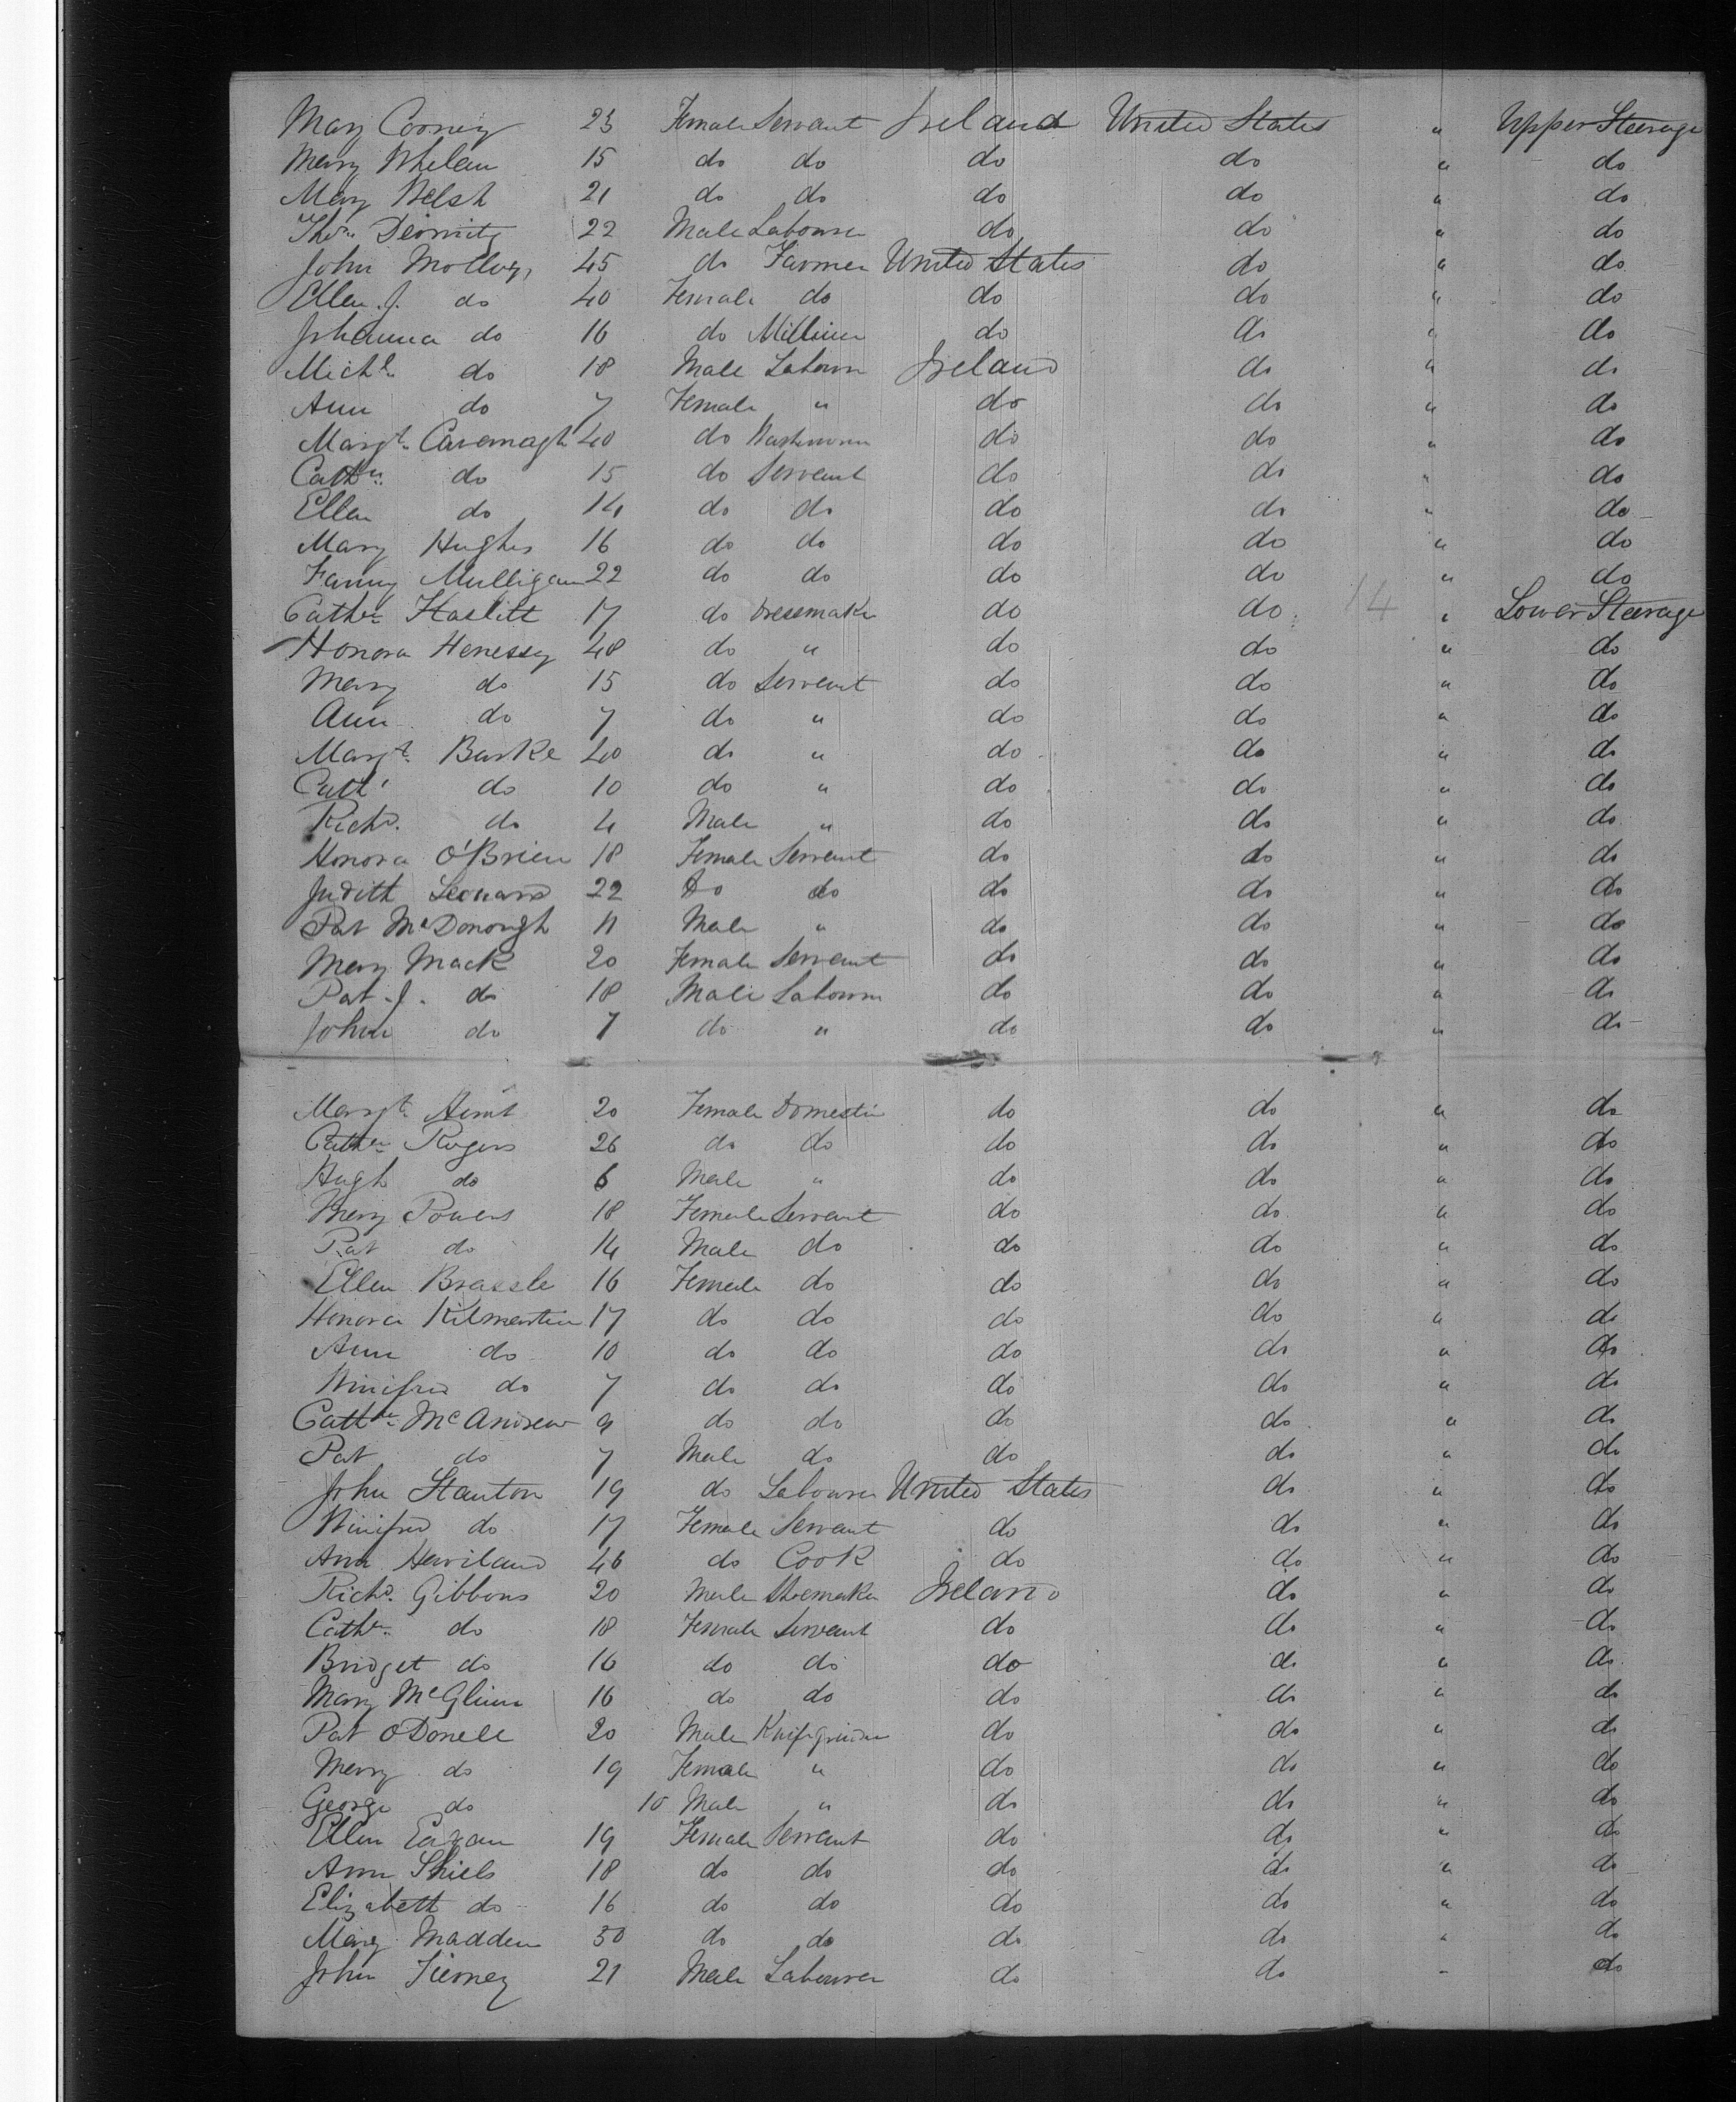 Mary Cooney 23 Female Servant Ireland United States " Upper Steerage
Mary Whelan 15 do do do do " do
Mary Welsh 21 do do do do " do
Thos 22 Male Labourer do do " do
John Molloy, 45 do Farmer United States do " do
Ellen J. do 40 Female do do do " do
Johanna do 16 do Milliner do do " do
Michl do 18 Male Labourer Ireland do " do
Ann do 7 Female " do do " do
Margt Cavernagh 40 do do do " do
Cathn do 15 do Servant do do " do
Ellen do 14 do do do do " do
Mary Hughes 16 do do do do " do
Fanny Mulligan 22 do do do do " do
Cathn Haslitt 17 do Dressmaker do do 14 " Lower Steerage
Honora Henessy 48 do " do do " do
Mary do 15 do Servant do do " do
Ann do 7 do " do do " do
Margt Burke 40 do " do do " do
Cath do 10 do " do do " do
Richd. do 4 Male " do do " do
Honora O'Brien 18 Female Servant do do " do
Judith Leonard 22 Do do do do " do
Pat McDonough 11 Male " do do " do
Mary Mack 20 Female Servant do do " do
Pat. J. do 18 Male Labourer do do " do
John do 7 do " do do " do
Margt 20 Female Domestic do do " do
Cathn Rogers 26 do do do do " do
Hugh do 6 Male " do do " do
Mary Powers 18 Female Servant do do " do
Pat do 14 Male do do do " do
Ellen Brassle 16 Female do do do " do
Honora Kilmartin 17 do do do do " do
Ann do 10 do do do do " do
Winifred do 7 do do do do " do
Cathn McAndrew 9 do do do do " do
Pat do 7 Male do do do " do
John Stanton 19 do Labourer United States do " do
Winifred do 17 Female Servant do do " do
Ann Haviland 46 do Cook do do " do
Richd. Gibbons 20 Male Shoemaker Ireland do " do
Cathn do 18 Female Servant do do " do
Bridget do 16 do do do do " do
Mary McGlinn 16 do do do do " do
Pat ODonell 20 Male Knifegrinder do do " do
Mary do 19 Female " do do " do
George do 10 Male " do do " do
Ellen Eagan 19 Female Servant do do " do
Ann Shiels 18 do do do do " do
Elizabeth do 16 do do do do " do
Mary Madden 50 do do do do " do
John Tierney 21 Male Labourer do do " do